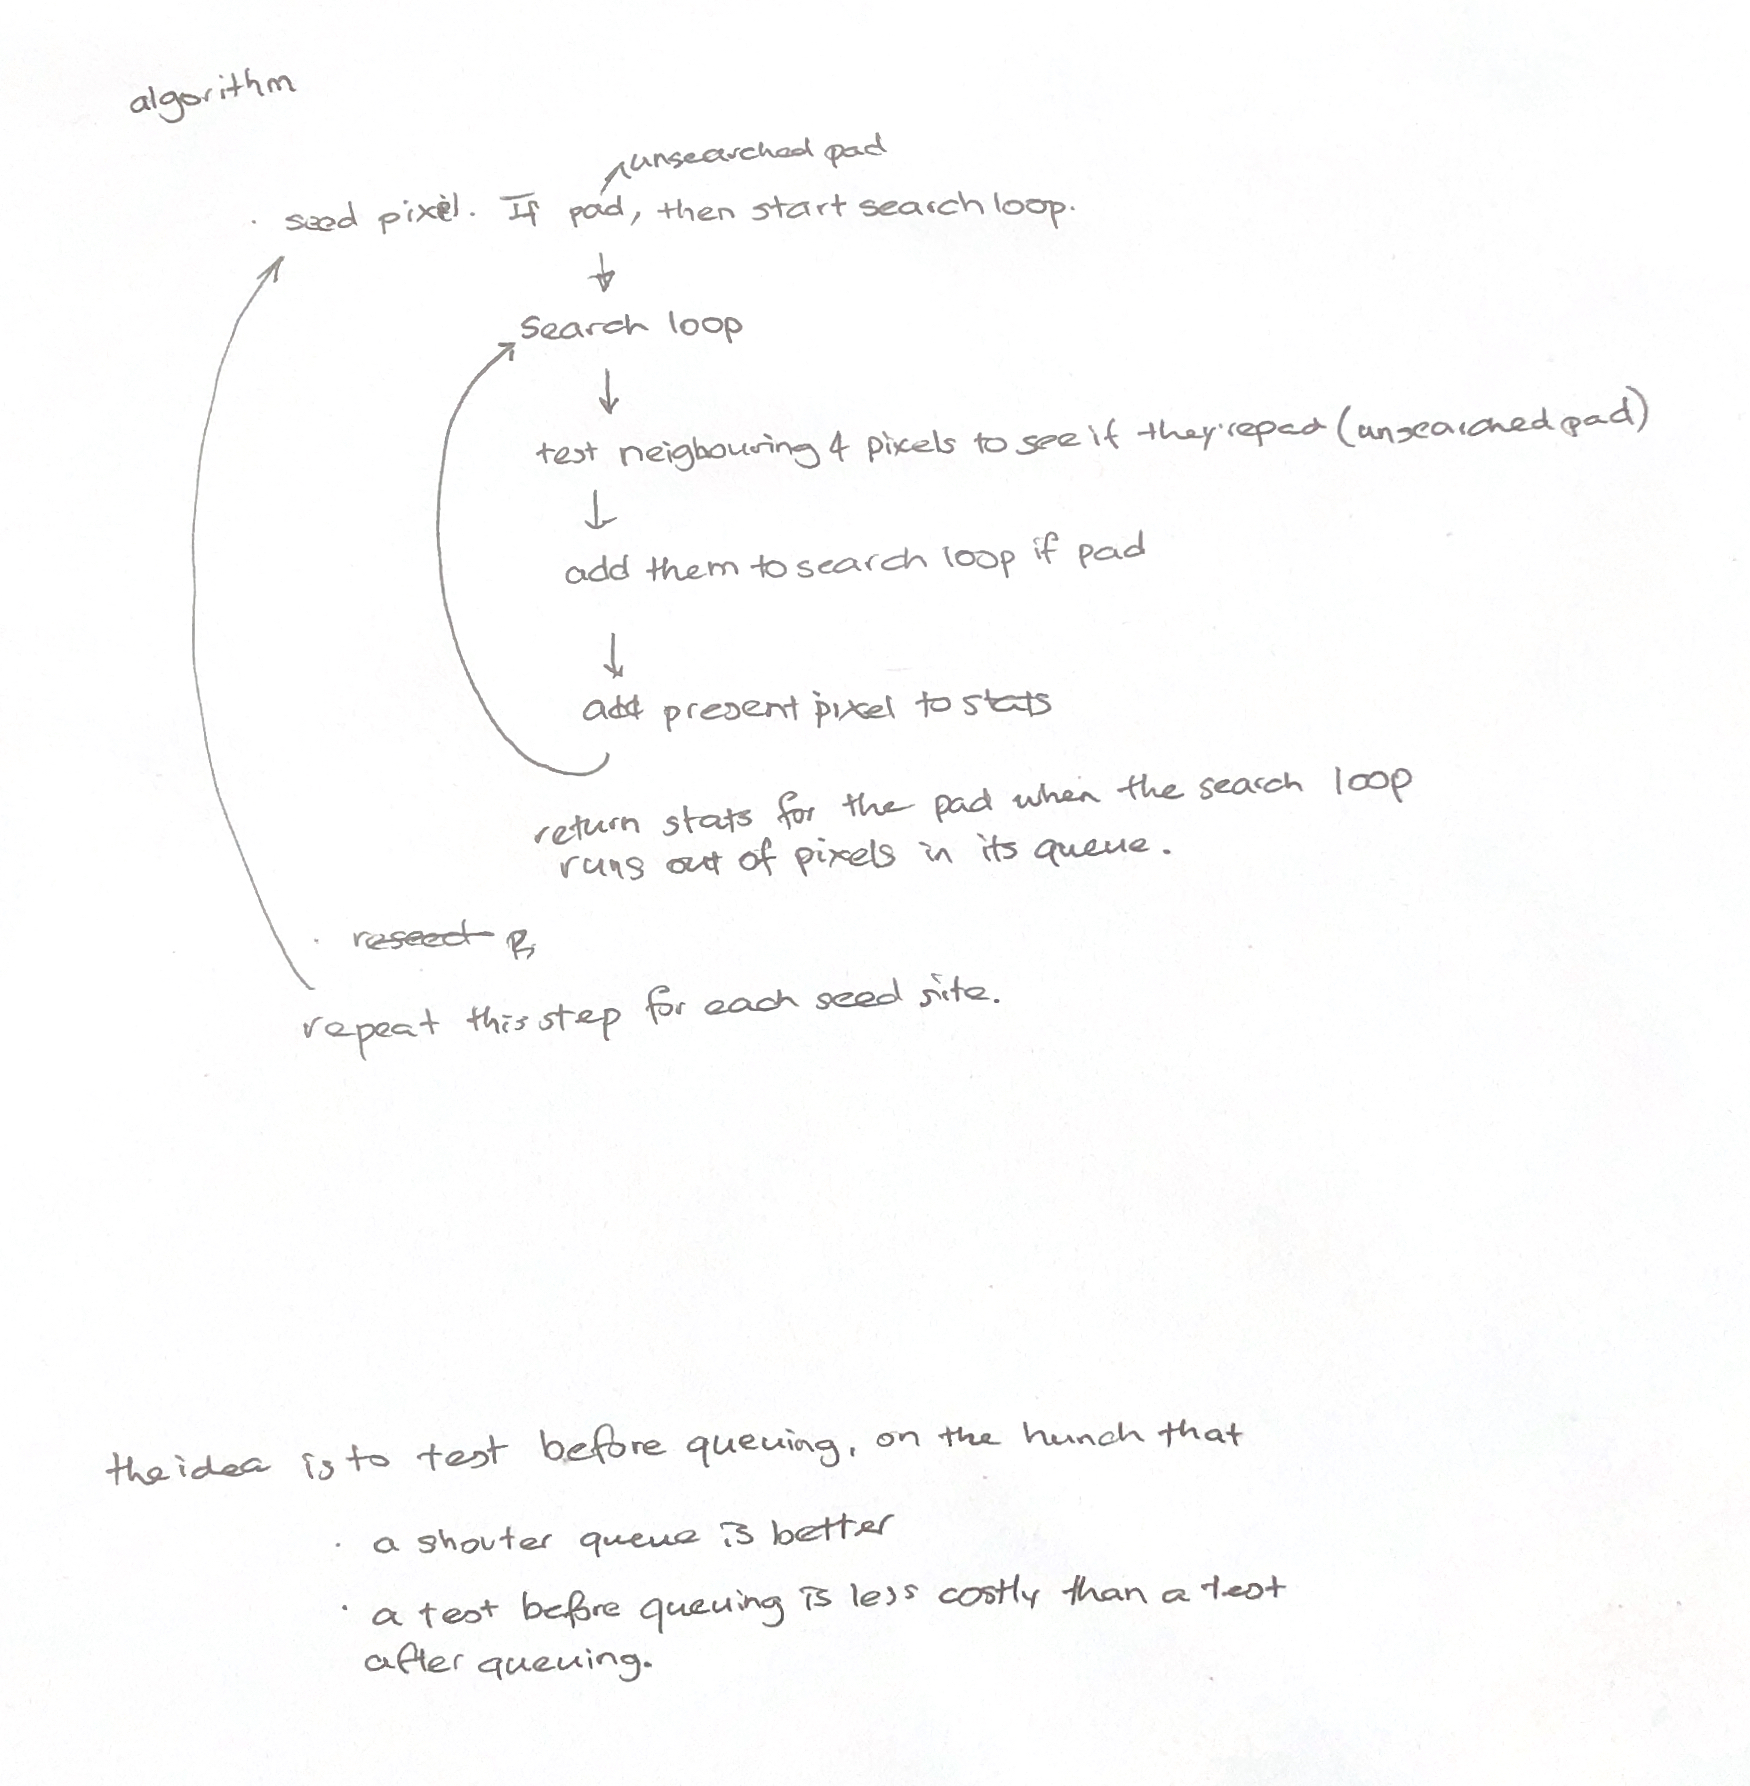 algorithm
unsearched pad
· seed pixel. If pad, then start search loop.
Search loop
test neigbouring 4 pixels to see if they're pad (unsearched pad)
add them to search loop if pad
add present pixel to stats
return stats for the pad when the search loop
runs out of pixels in its queue.
· reseed
repeat this step for each seed site.
the idea is to test before queuing, on the hunch that
· a shorter queue is better
· a test before queuing is less costly than a test
after queuing.